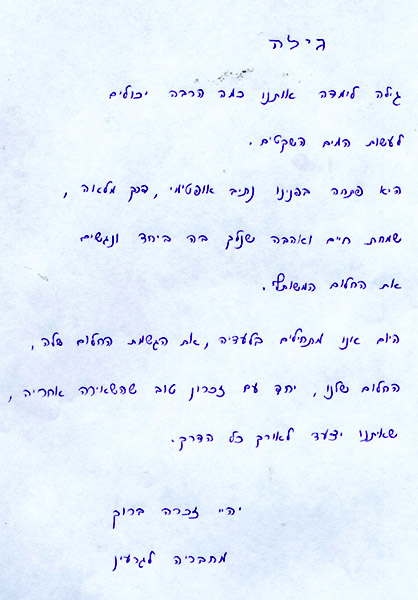 גילה
גילה לימדה אותנו כמה הרבה יכולים
לעשות המים השקטים.
היא פתחה בפנינו נתיב אופטימי, דרך מלאה,
שמחת חיים ואהבה שנלך בה ביחד ונגשים
את החלום המשותף.
היום אנו מתחילים בלעדיה, את הגשמת החלום שלה,
החלום שלנו, יחד עם זכרון טוב שהשאירה אחריה,
שאיתנו יצעד לאורך כל הדרך.
יהי זכרה ברוך
מחבריה לגרעין